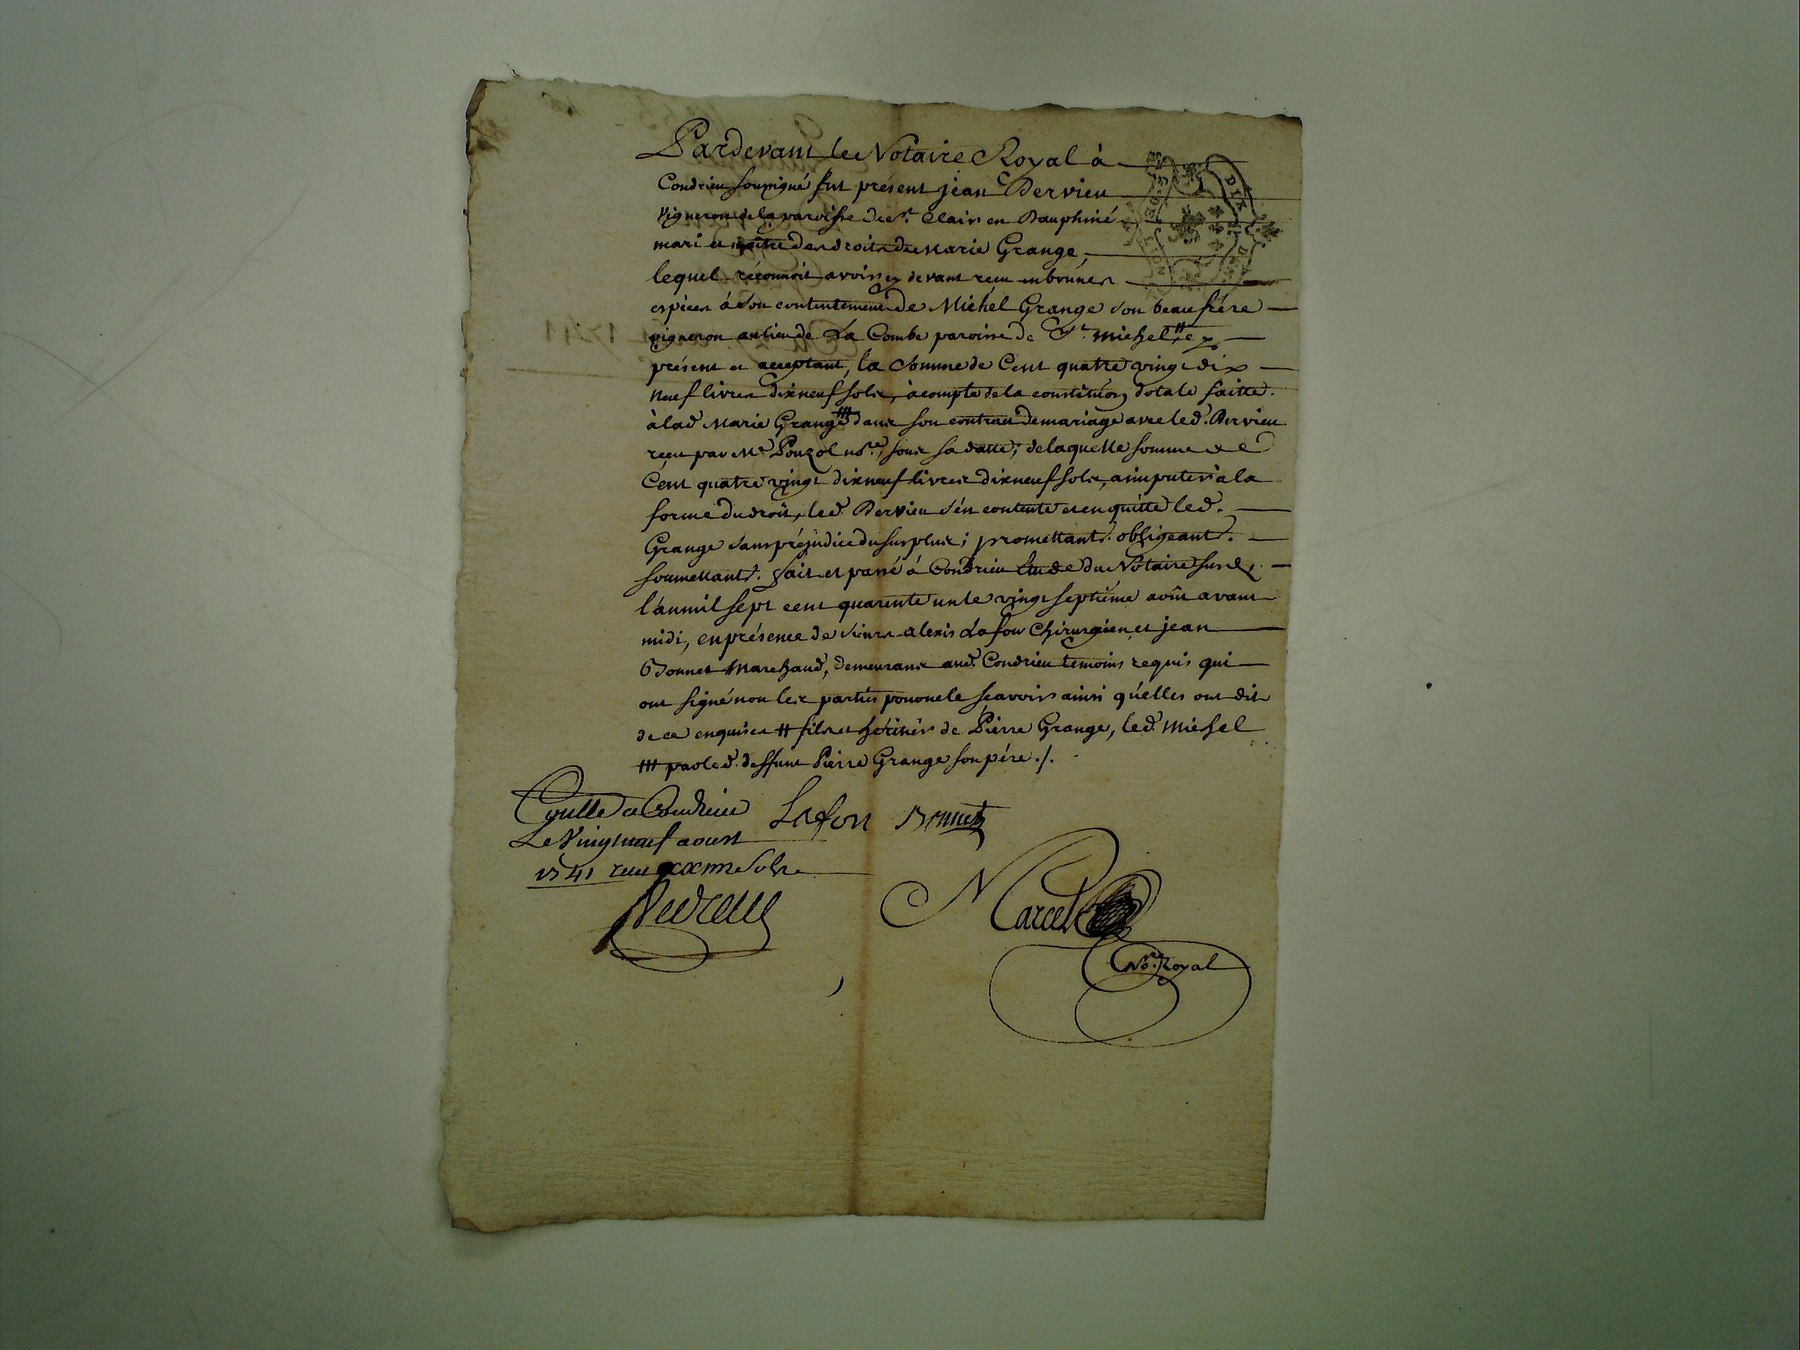 Pardevant le Notaire Royal à
Condrieu soussigné fut présent jean Dervieu
vigneron de la paroisse de st. Clair en Dauphiné
mari et maître des droits de Marie Grange,
lequel réconnoit avoir cy devant reçu en bonnes
espèces à son contentement de Michel Grange son beaufrére
vigneron au lieu de La Combe paroisse de st. Michel # cy
présent et acceptant, la somme de Cent quatre vingt dix
neuf livres dixneuf sols, àcompte de la constitution dotale faitte
à lad. Marie Grange ### dans son contract de mariage avec led. Dervieu
reçu par Me Pouzol nore, sous sa datte; de laquelle somme de
Cent quatre vingt dixneuf livres dixneuf sols, a imputer à la
forme du droit, led. Dervieu s'en contente et en quitte led.
Grange sans préjudice du surplus; promettant. obligeant.
soumettant. fait et passé à Condrieu Etude du Notaire susd.
l'an mil sept cent quarente un le vingt septiéme août avant
midi, en présence de sieurs Alexis Lafon Chirurgien et jean
Bonnet Marchand, demeurans aud. Condrieu temoins requis qui
ont signé non les parties pour ne le sçavoir ainsi qu'elles ont dit
de ce enquises # fils et héritier de Pierre Grange, led. Michel
### par led. deffunt Pierre Grange son pére ./.
Conllé a Condrieu Lafon Bonnet
Le Vingt neuf aoust
1741 reçu sols
Marcel
Nore. Royal